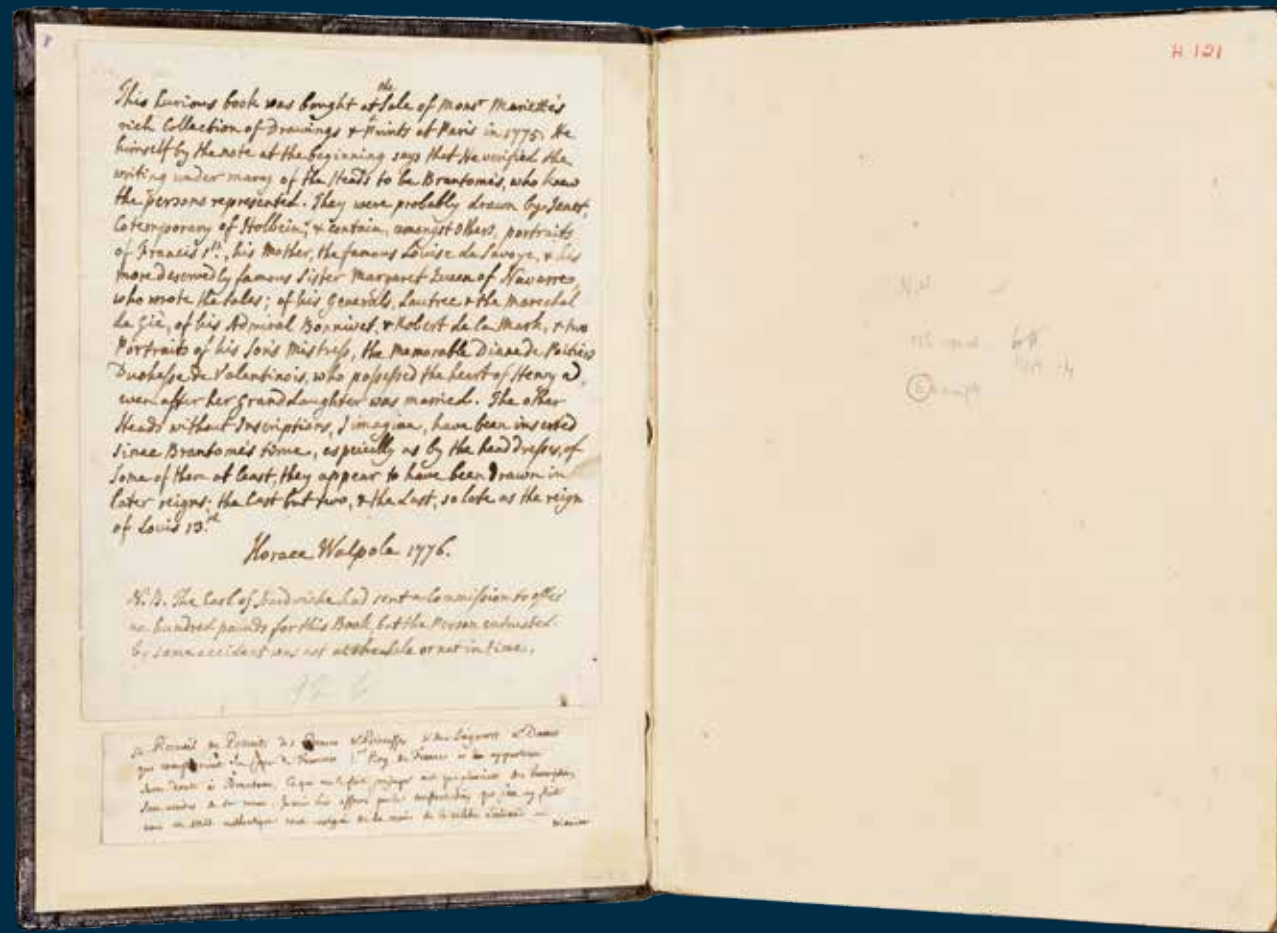 the
This Curious book was bought at Sale of Monsr Mariette's
rich Collection of Drawings & Prints at Paris in 1775. He
himself by the note at the beginning says that He verified the
writing under many of the Heads to be Brantome's, who knew
the persons represented. They were probably drawn by Janet,
Cotemporary of Holbein; & contain, amongst others, portraits
of Francis 1st, his Mother, the famous Louise de Savoye, & his
more deservedly famous Sister Margaret Queen of Navarre,
who wrote the tales; of his Generals, Lautrec & the Marechal
de Gié, of his Admiral Bonnivet, & Robert de la Mark, & two
Portraits of his Son's Mistress, the memorable Diane de Poitiers
Duchesse de Valentinois, who possessed the heart of Henry 2d
even after her Granddaughter was married. The other
Heads without Inscriptions, I imagine, have been inserted
since Brantome's time, especially as by the head dresses, of
some of them at least, they appear to have been Drawn in
later reigns; the last but two, & the Last, so late as the reign
of Louis 13th
Horace Walpole 1776.
N.B. The Earl of Hardwicke had sent a Commission to offer
hundred pounds for this Book, but the Person entrusted
by some accident was not at the Sale or not in time.
Recueil de Portraits des Princes & Princesses & des Seigneurs & Dames
Roy de France
à Brantome
de la main de
H 121